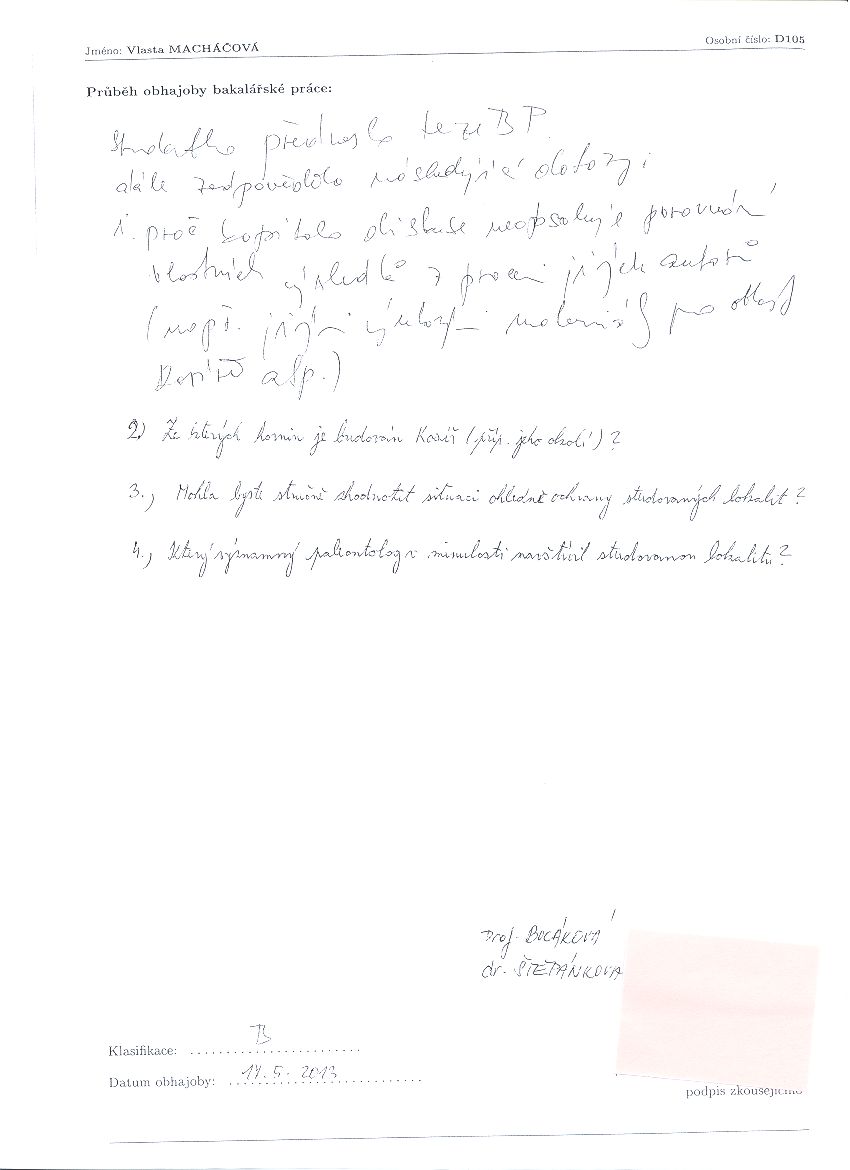 Jméno: Vlasta MACHÁČOVÁ
Osobní číslo: D105
Průběh obhajoby bakalářské práce:
Studentka přednesla teze BP
dále zodpověděla následující dotazy:
1. proč kapitola diskuse neobsahuje porovnání
vlastních výsledků z prací jiných autorů
(např. jejími materiál pro oblast
apo.)
2) Ze kterých hornin je budován Kosíř (příp. jeho okolí)?
3.) Mohla byste stručně zhodnotit situaci ohledně ochrany studovaných lokalit?
4.) Který významný paleontolog v minulosti navštívil studovanou lokalitu?
Prof. BOČÁKOVÁ
dr. ŠTĚPÁNKOVÁ
Klasifikace: B
Datum obhajoby: 14.5.2013
podpis zkoušejícího